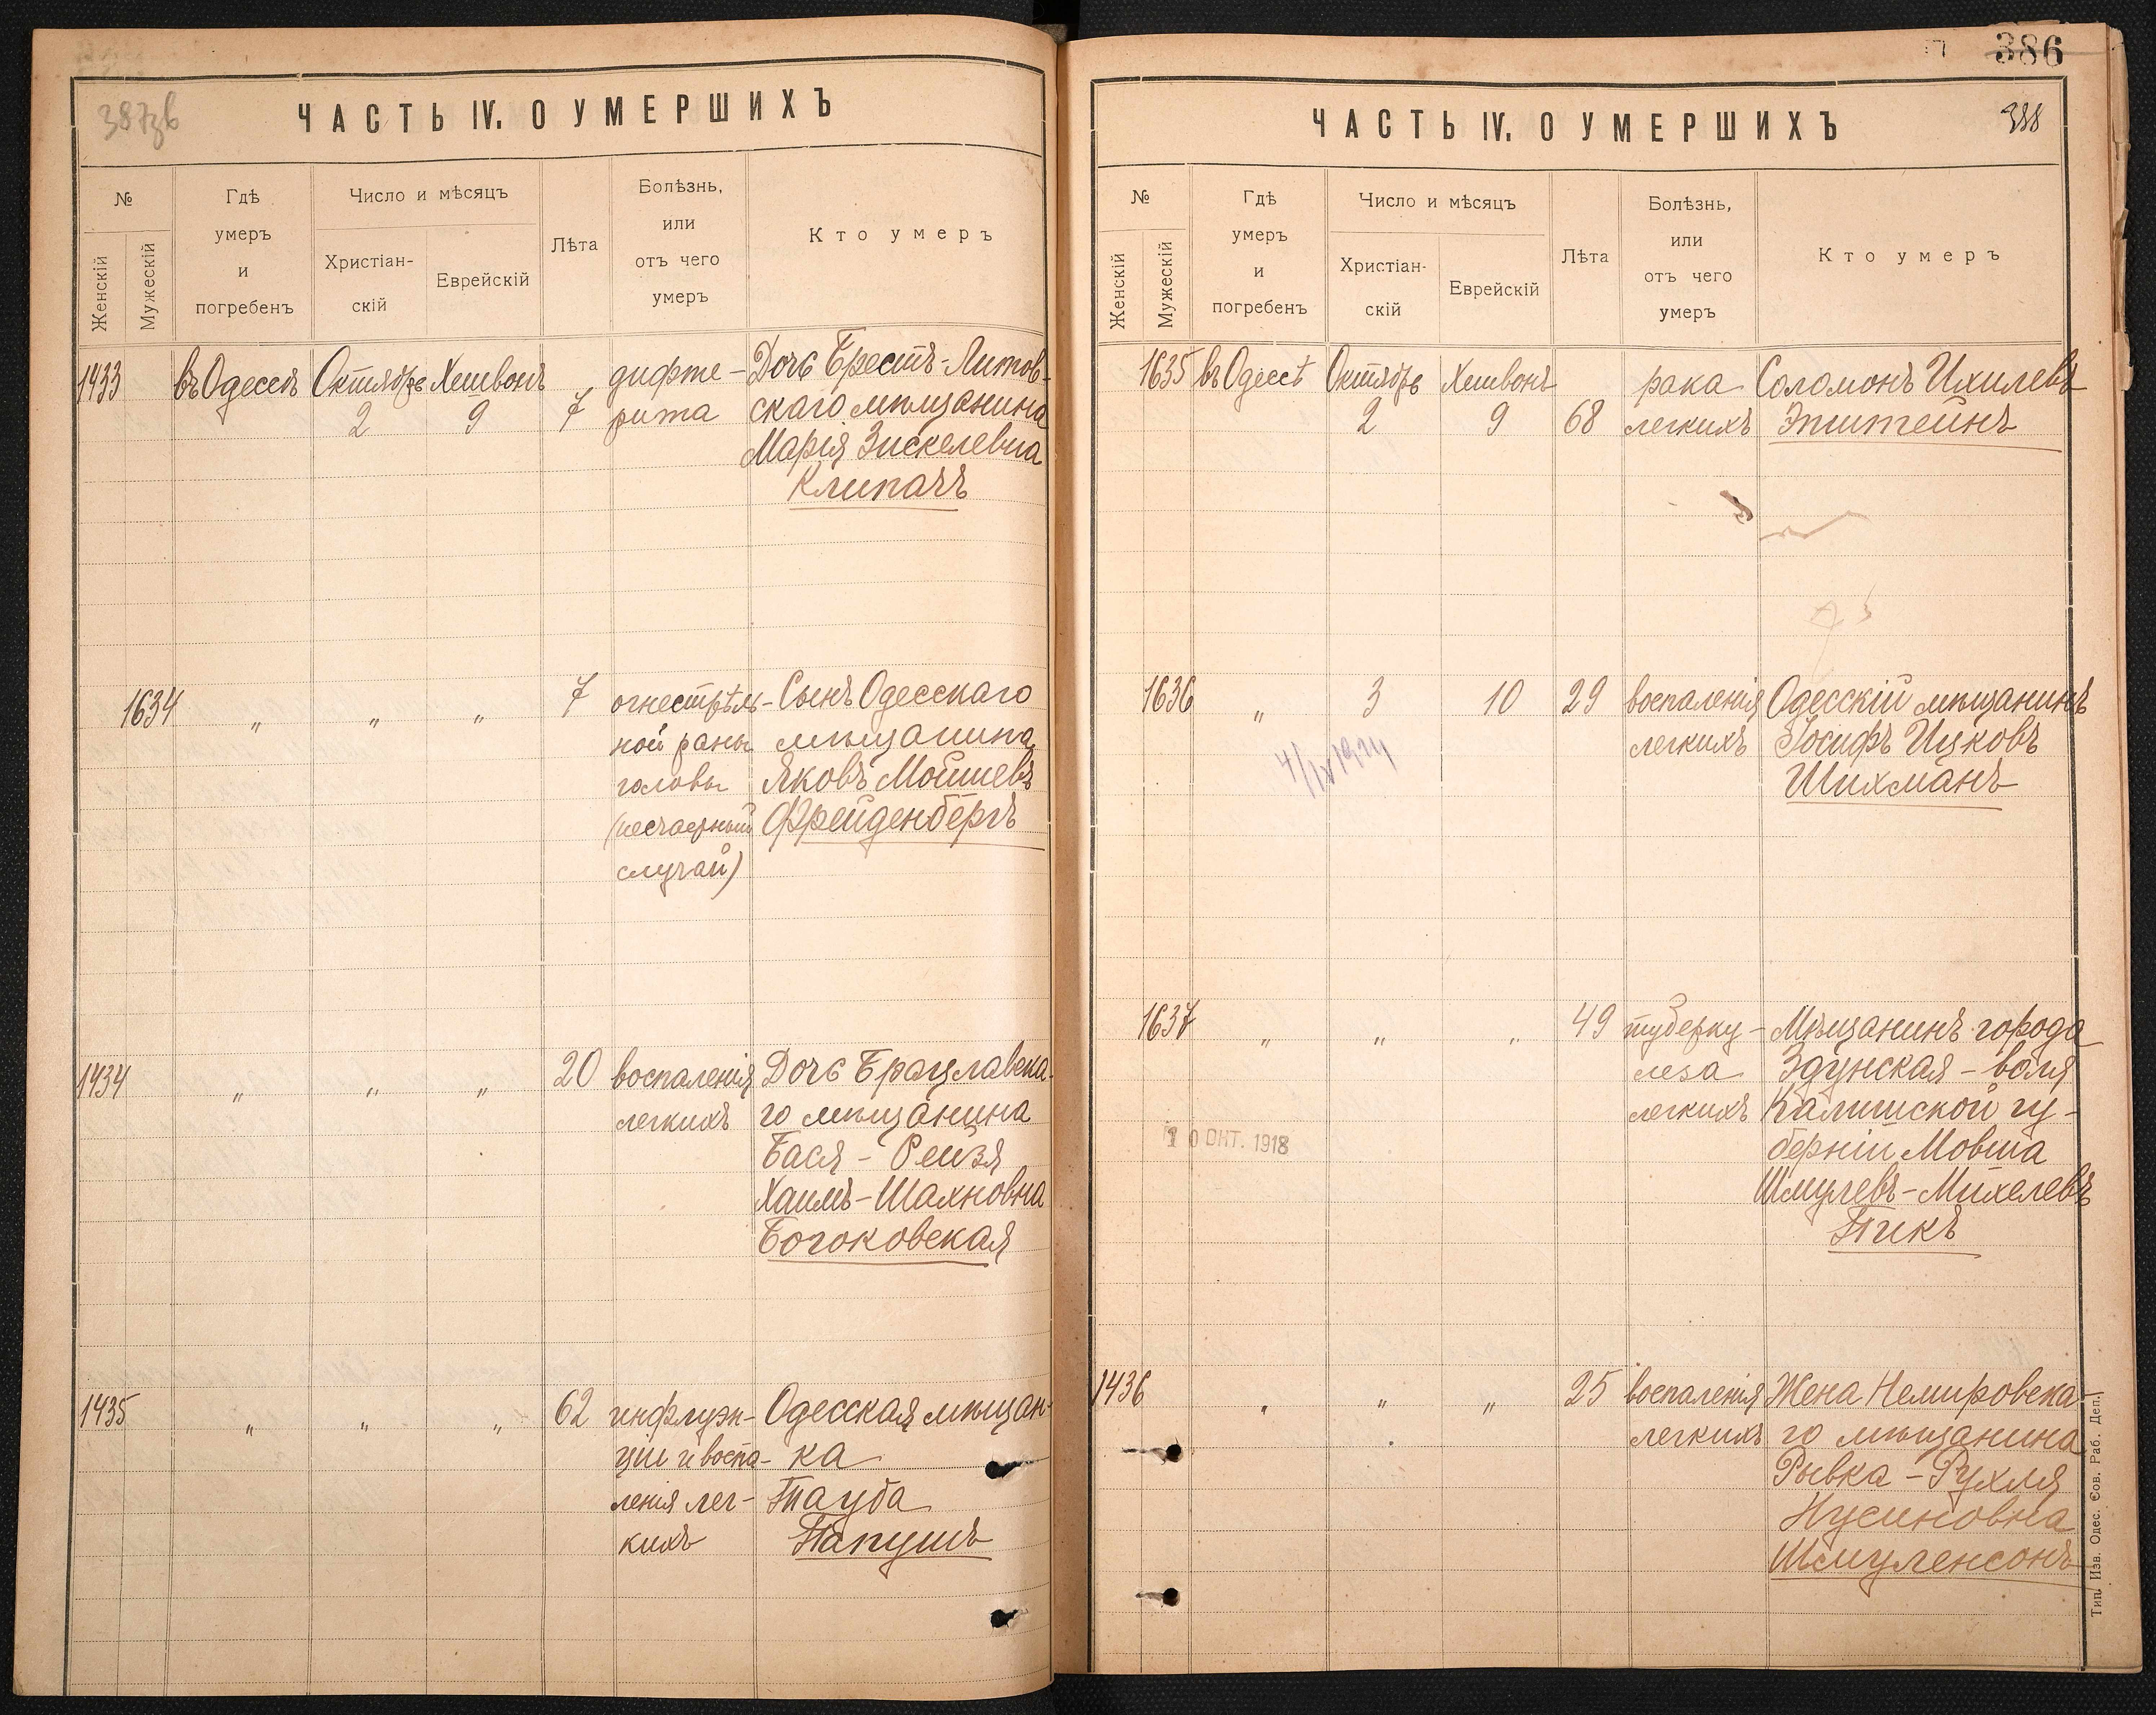 387зв
ЧАСТЬ IV. О УМЕРШИХЪ
№
Женскій
Мужескій
Гдѣ
умеръ
и
погребенъ
Число и мѣсяцъ
Христіан-
скій
Еврейскій
Лѣта
Болѣзнь,
или
отъ чего
умеръ
Кто умеръ
1433 въ Одессѣ Октябрь Хешвонъ дифте- Дочь Брестъ-Литов-
2 9 7 рита скаго мѣщанина
Марія Зискелевна
Клипачъ
1634 " " " 7 огнестрѣль- Сынъ Одесскаго
ной раны мѣщанина
головы Яковъ Мошшевъ
(несчастный Фрейденбергъ
случай)
1434 " " " 20 воспаленія Дочь Брацлавска-
легкихъ го мѣщанина
Бася - Рейзя
Хаимъ-Шахновна
Богоковская
1435 " " " 62 инфлуэн- Одесская мѣщан-
ціи и воспа- ка
ленія лег- Тауба
кихъ Папушъ
386
ЧАСТЬ IV. О УМЕРШИХЪ
388
№
Женскій
Мужескій
Гдѣ
умеръ
и
погребенъ
Число и мѣсяцъ
Христіан-
скій
Еврейскій
Лѣта
Болѣзнь,
или
отъ чего
умеръ
Кто умеръ
1635 въ Одессѣ Октябрь Хешвонъ рака Соломонъ Ихилевъ
2 9 68 легкихъ Эпштейнъ
1636 " 3 10 29 воспаленія Одесскій мѣщанинъ
легкихъ Іосифъ Ицковъ
Шихманъ
1637 " " " 49 туберку- Мѣщанинъ города
леза Здунская - воля
легкихъ Калишской гу-
берніи Мовша
Шмулевъ-Михелевъ
Пикъ
10 ОКТ. 1918
1436 " " " 25 воспаленія Жена Немировска-
легкихъ го мѣщанина
Рывка - Рухля
Нусиновна
Шмуленсонъ
Тип. Изв. Одес. Сов. Раб. Деп.